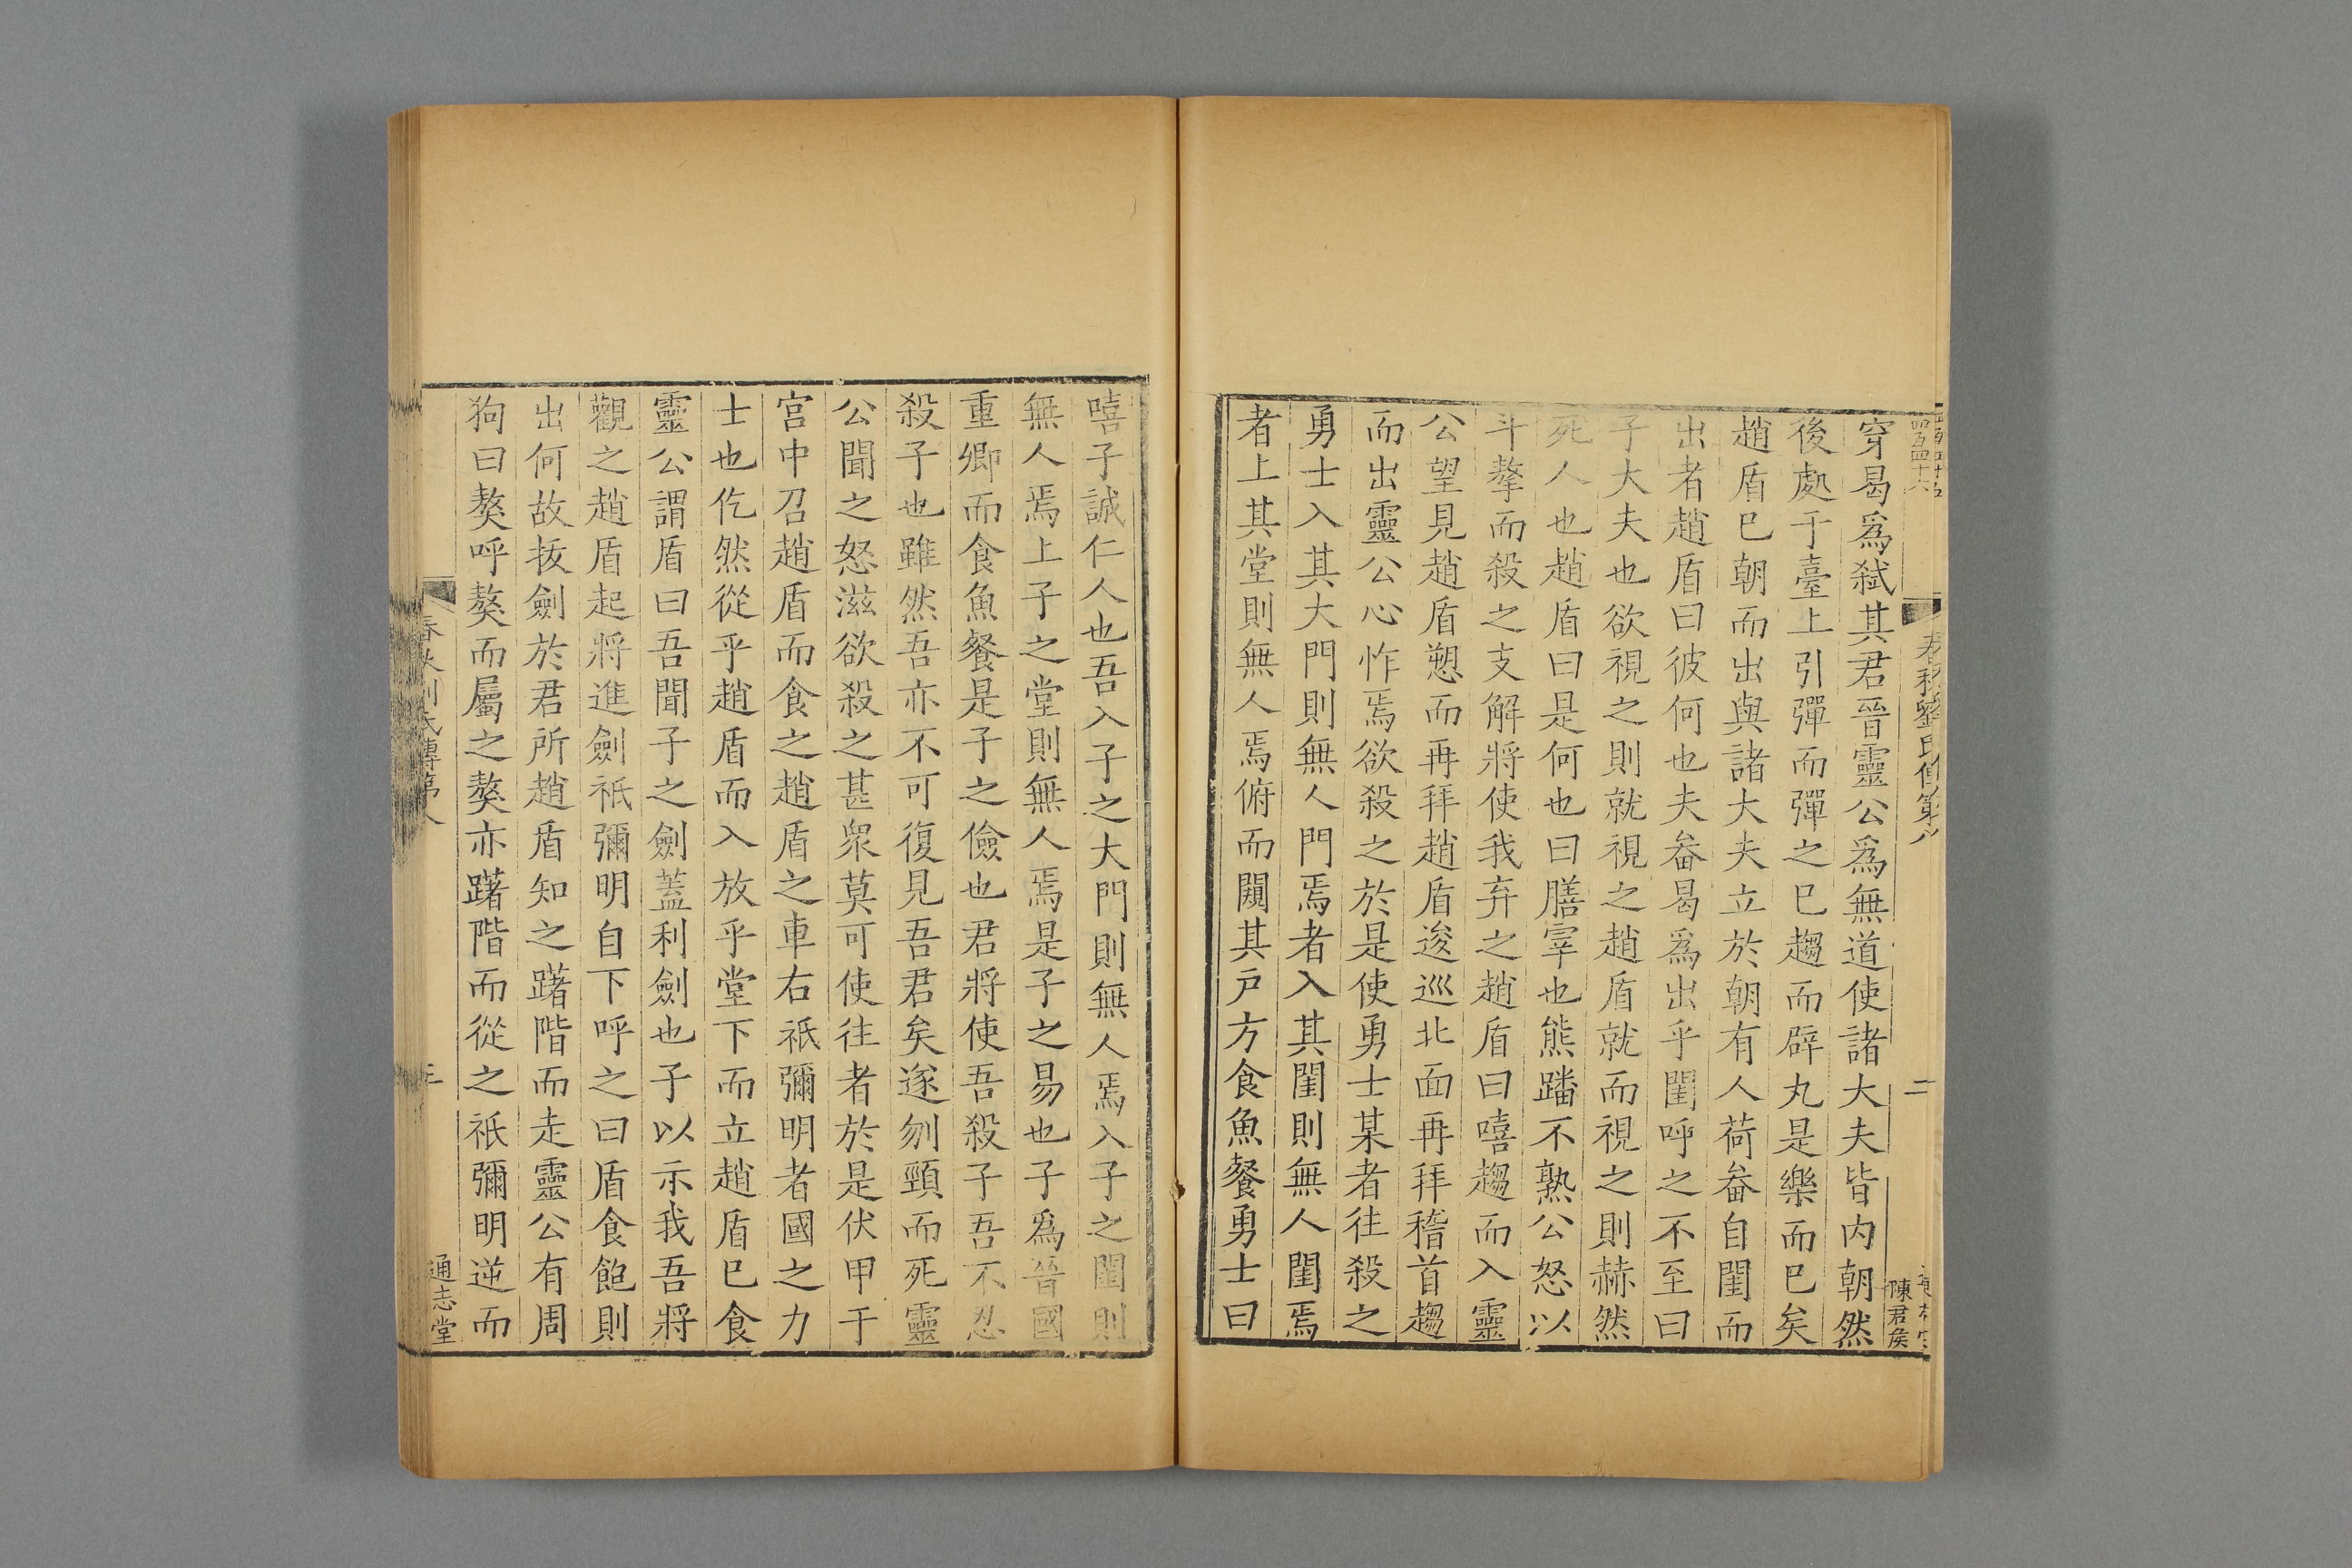 春秋劉氏傳第八
二
陳君矦
穿曷爲弑其君晉靈公爲無道使諸大夫皆内朝然
後處于臺上引彈而彈之巳趨而辟丸是樂而巳矣
趙盾巳朝而出與諸大夫立於朝有人荷畚自閨而
出者趙盾曰彼何也夫畚曷爲出乎閨呼之不至曰
子大夫也欲視之則就視之趙盾就而視之則赫然
死人也趙盾曰是何也曰膳宰也熊蹯不熟公怒以
斗摮而殺之支解將使我弃之趙盾曰嘻趨而入靈
公望見趙盾愬而再拜趙盾逡巡北面再拜稽首趨
而出靈公心怍焉欲殺之於是使勇士某者往殺之
勇士入其大門則無人門焉者入其閨則無人閨焉
者上其堂則無人焉俯而闚其戸方食魚餐勇士曰
嘻子誠仁人也吾入子之大門則無人焉入子之閨則
無人焉上子之堂則無人焉是子之易也子爲晉國
重卿而食魚餐是子之儉也君將使吾殺子吾不忍
殺子也雖然吾亦不可復見吾君矣遂刎頸而死靈
公聞之怒滋欲殺之甚衆莫可使往者於是伏甲于
宫中召趙盾而食之趙盾之車右祇彌明者國之力
士也仡然從乎趙盾而入放乎堂下而立趙盾巳食
靈公謂盾曰吾聞子之劍蓋利劍也子以示我吾將
觀之趙盾起將進劍祇彌明自下呼之曰盾食飽則
出何故拔劍於君所趙盾知之躇階而走靈公有周
狗曰獒呼獒而屬之獒亦躇階而從之祇彌明逆而
春秋劉氏傳第八
三
通志堂